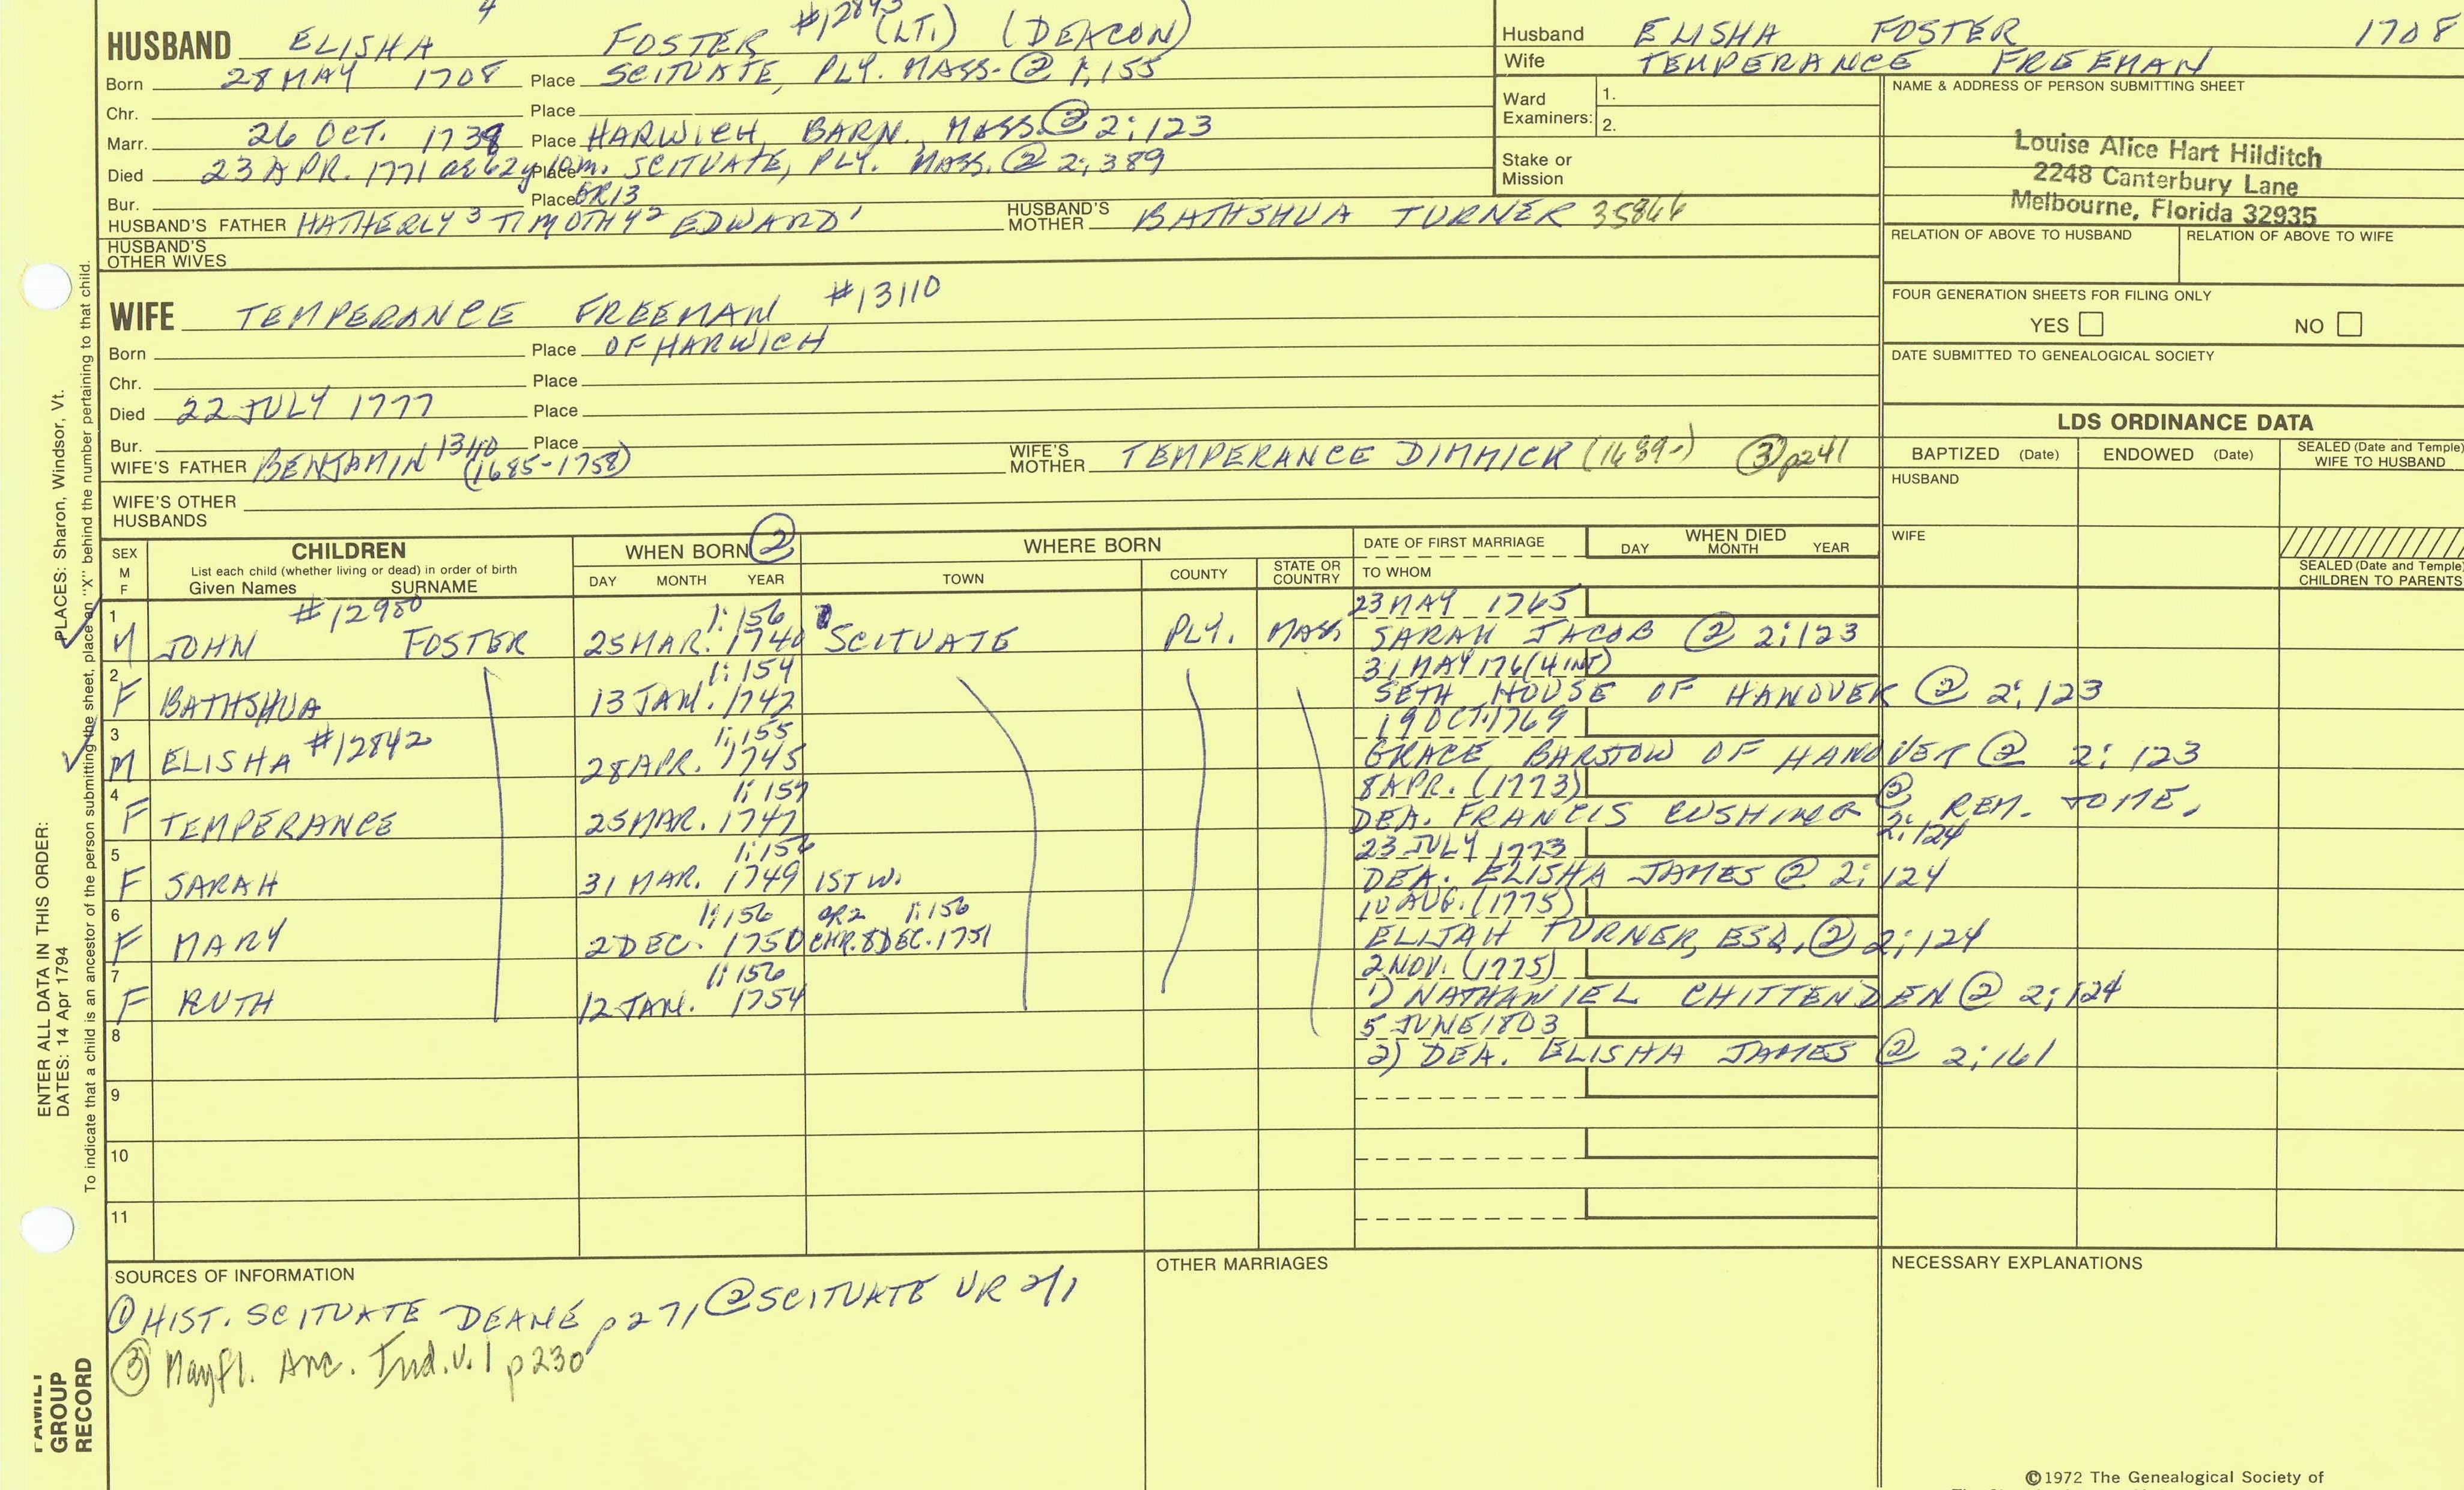 4
HUSBAND ELISHA FOSTER #12843 (LT.) (DEACON)
Born 28 MAY 1708 Place SCITUATE, PLY. MASS. @ 1;155
Chr. Place
Marr. 26 OCT. 1738 Place HARWICH, BARN. MASS. @ 2;123
Died 23 APR. 1771 ae 62y 10m. Place SCITUATE, PLY. MASS. @ 2;389
Bur. Place GR13
HUSBAND'S FATHER HATHERLY 3 TIMOTHY 2 EDWARD 1 HUSBAND'S MOTHER BATHSHUA TURNER 35866
HUSBAND'S OTHER WIVES
Husband ELISHA FOSTER 1708
Wife TEMPERANCE FREEMAN
Ward Examiners: 1.
2.
Stake or Mission
NAME & ADDRESS OF PERSON SUBMITTING SHEET
Louise Alice Hart Hilditch
2248 Canterbury Lane
Melbourne, Florida 32935
RELATION OF ABOVE TO HUSBAND RELATION OF ABOVE TO WIFE
FOUR GENERATION SHEETS FOR FILING ONLY
YES NO
DATE SUBMITTED TO GENEALOGICAL SOCIETY
WIFE TEMPERANCE FREEMAN #13110
Born Place OF HARWICH
Chr. Place
Died 22 JULY 1777 Place
Bur. Place
WIFE'S FATHER BENJAMIN (1685-1758) WIFE'S MOTHER TEMPERANCE DIMMICK (1689-) ③ p241
WIFE'S OTHER HUSBANDS
LDS ORDINANCE DATA
BAPTIZED (Date) ENDOWED (Date) SEALED (Date and Temple) WIFE TO HUSBAND
HUSBAND
WIFE
SEALED (Date and Temple) CHILDREN TO PARENTS
SEX M F CHILDREN WHEN BORN ② WHERE BORN DATE OF FIRST MARRIAGE WHEN DIED
List each child (whether living or dead) in order of birth
Given Names SURNAME DAY MONTH YEAR TOWN COUNTY STATE OR COUNTRY TO WHOM DAY MONTH YEAR
1 #12980 1;156 23 MAY 1765
M JOHN FOSTER 25 MAR. 1740 SCITUATE PLY. MASS. SARAH JACOB @ 2;123
2 1;154 31 MAY 176(4 INT)
F BATHSHUA 13 JAN. 1742 SETH HOUSE OF HANOVER @ 2;123
3 1;155 19 OCT. 1769
M ELISHA #12842 28 APR. 1745 GRACE BARSTOW OF HANOVER @ 2;123
4 1;157 8 APR. (1773)
F TEMPERANCE 25 MAR. 1747 DEA. FRANCIS CUSHING @ 2;124 REM. TO ME.
5 1;156 23 JULY 1773
F SARAH 31 MAR. 1749 1ST W. DEA. ELISHA JAMES @ 2;124
6 1;156 CR2 1;156 10 AUG. (1775)
F MARY 2 DEC. 1750 CHR. 8 DEC. 1751 ELIJAH TURNER, ESQ. @ 2;124
7 1;156 2 NOV. (1775)
F RUTH 12 JAN. 1754 1) NATHANIEL CHITTENDEN @ 2;124
8 5 JUNE 1803
2) DEA. ELISHA JAMES @ 2;161
9
10
11
SOURCES OF INFORMATION OTHER MARRIAGES NECESSARY EXPLANATIONS
① HIST. SCITUATE DEANE p271 ② SCITUATE VR 2/1
③ Mayfl. Anc. Ind. v. 1 p230
©1972 The Genealogical Society of
ENTER ALL DATA IN THIS ORDER: PLACES: Sharon, Windsor, Vt.
DATES: 14 Apr 1794
To indicate that a child is an ancestor of the person submitting the sheet, place an "X" behind the number pertaining to that child.
FAMILY
GROUP
RECORD